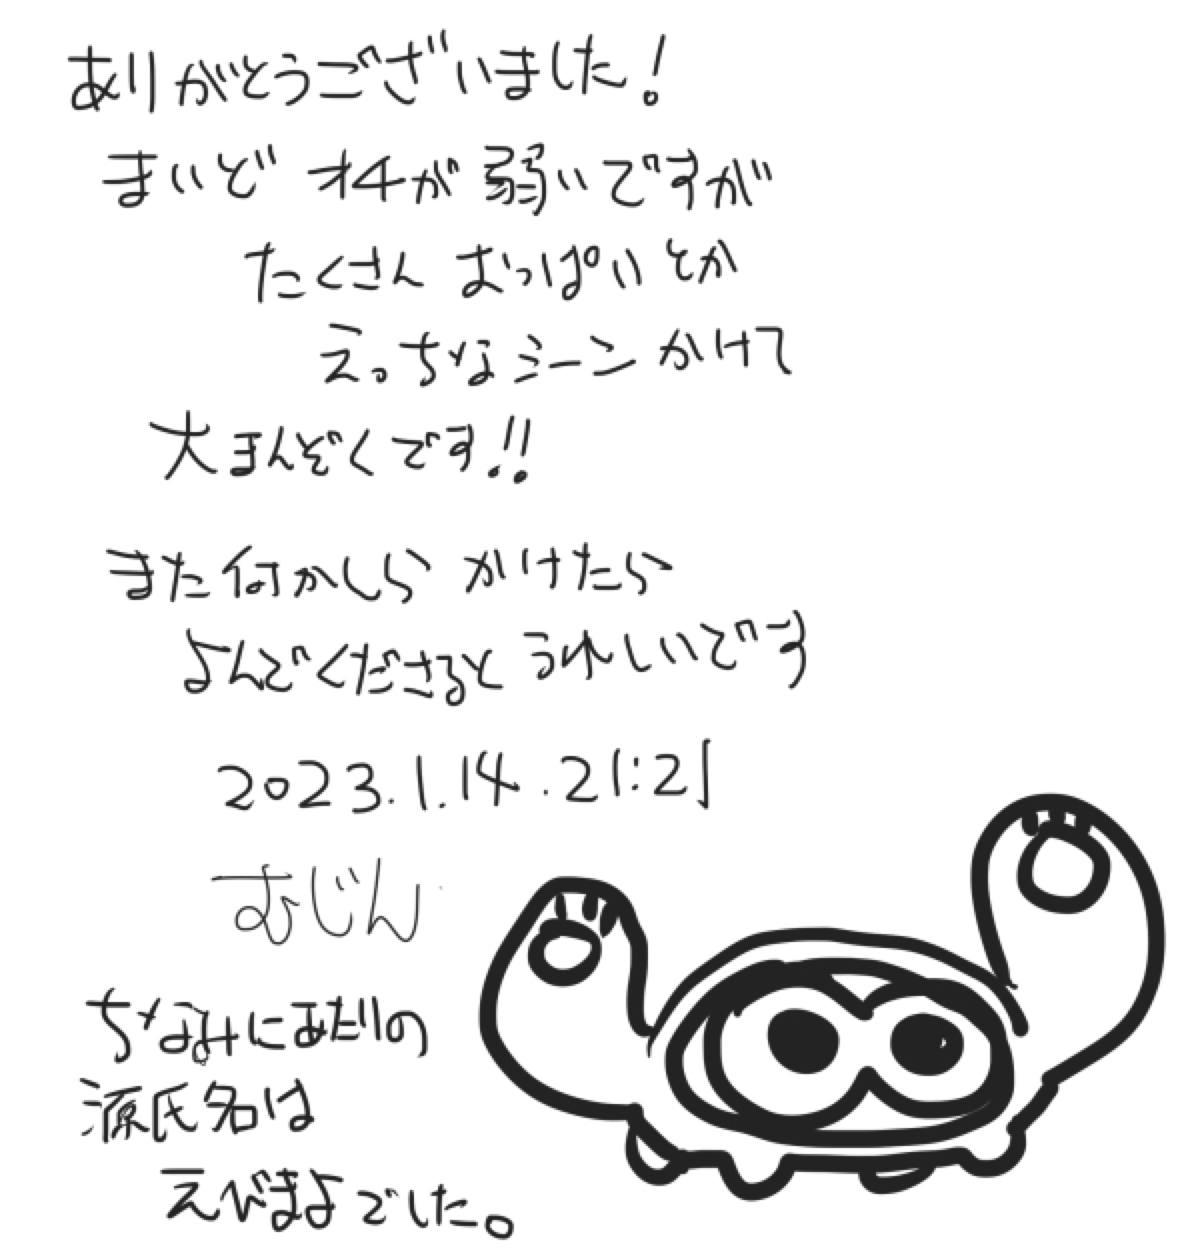 ありがとうございました!
まいど オチが 弱いですが
たくさん おっぱいとか
えっちなシーン かけて
大まんぞくです!!
また何かしら かけたら
よんでくださると うれしいです
2023.1.14.21:21
むじん
ちなみにあだりの
源氏名は
えびまよでした。